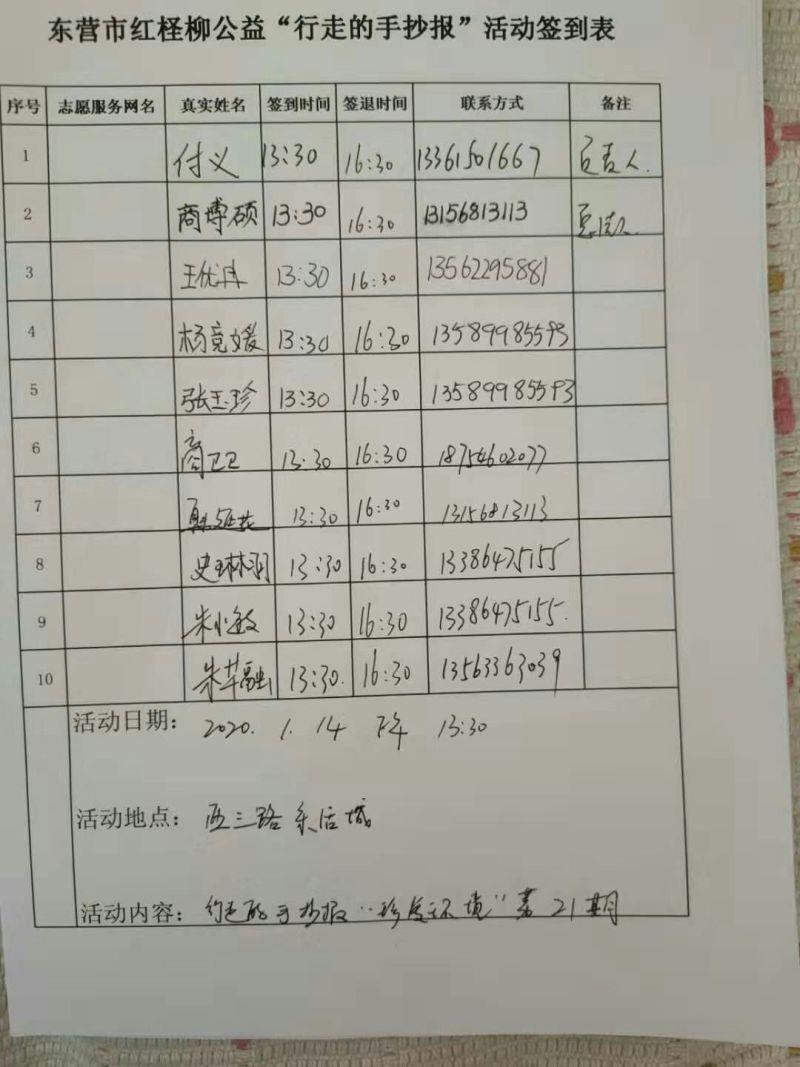 东营市红柽柳公益“行走的手抄报”活动签到表
序号 志愿服务网名 真实姓名 签到时间 签退时间 联系方式 备注
1 付义 13:30 16:30 13361501667 负责人.
2 商博硕 13:30 16:30 13156813113
3 王优冉 13:30 16:30 13562295881
4 杨竞媛 13:30 16:30 13589985593
5 张玉珍 13:30 16:30 13589985593
6 商卫卫 13:30 16:30 18754602077
7 13:30 16:30 13156813113
8 史琳润 13:30 16:30 13386475155
9 朱小敏 13:30 16:30 13386475155.
10 朱芊融 13:30. 16:30 13563363039
活动日期: 2020. 1. 14 下午 13:30
活动地点: 西三路 乐活城
活动内容: 行走的手抄报“珍爱环境”第21期